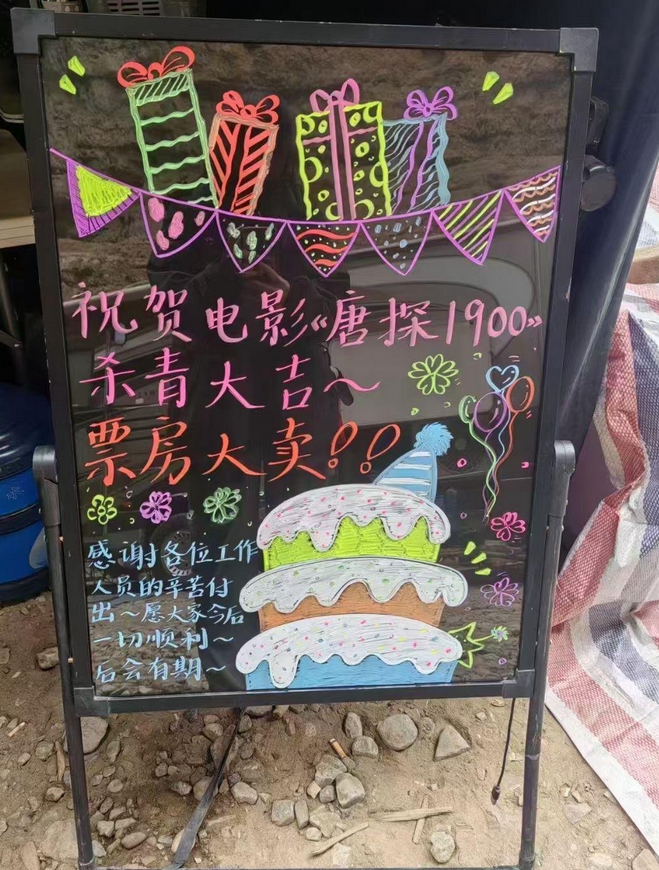 祝贺电影《唐探1900》
杀青大吉～
票房大卖!!
感谢各位工作
人员的辛苦付
出～愿大家今后
一切顺利～
后会有期～